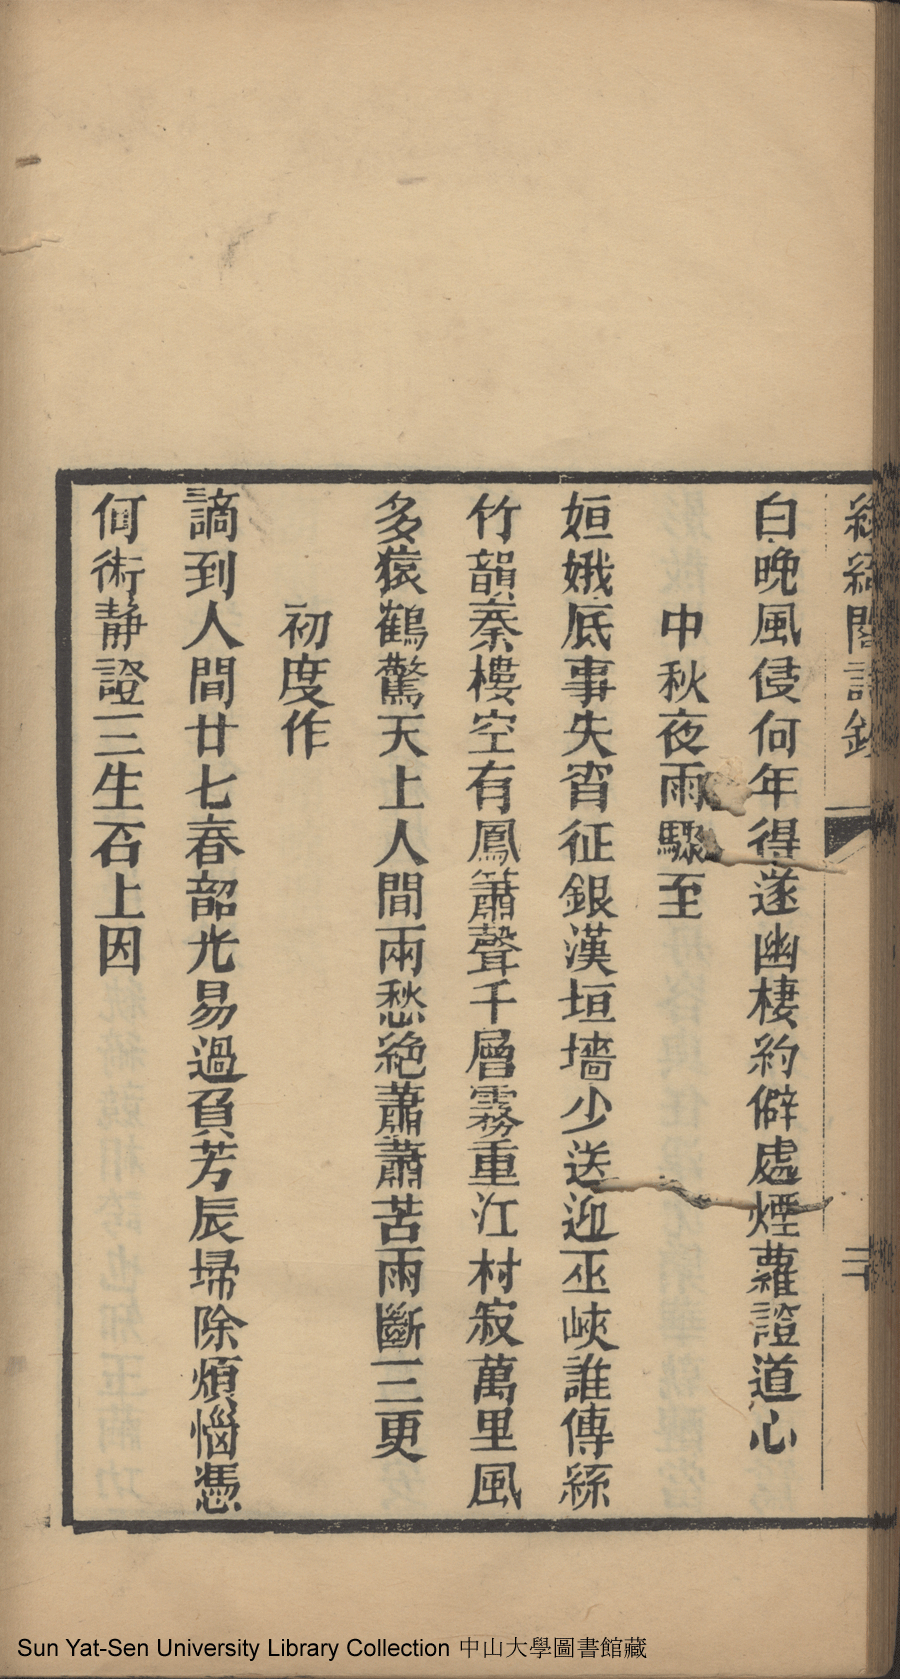 閣詩鈔
二
白晚風侵何年得遂幽棲約僻處煙蘿證道心
中秋夜雨驟至
姮娥底事失宵征銀漢垣墻少送迎巫峽誰傳絲
竹韻秦樓空有鳳簫聲千層霧重江村寂萬里風
多猿鶴驚天上人間兩愁絕蕭蕭苦雨斷三更
初度作
謫到人間廿七春韶光易過負芳辰埽除煩惱憑
何術靜證三生石上因
Sun Yat-Sen University Library Collection 中山大學圖書館藏